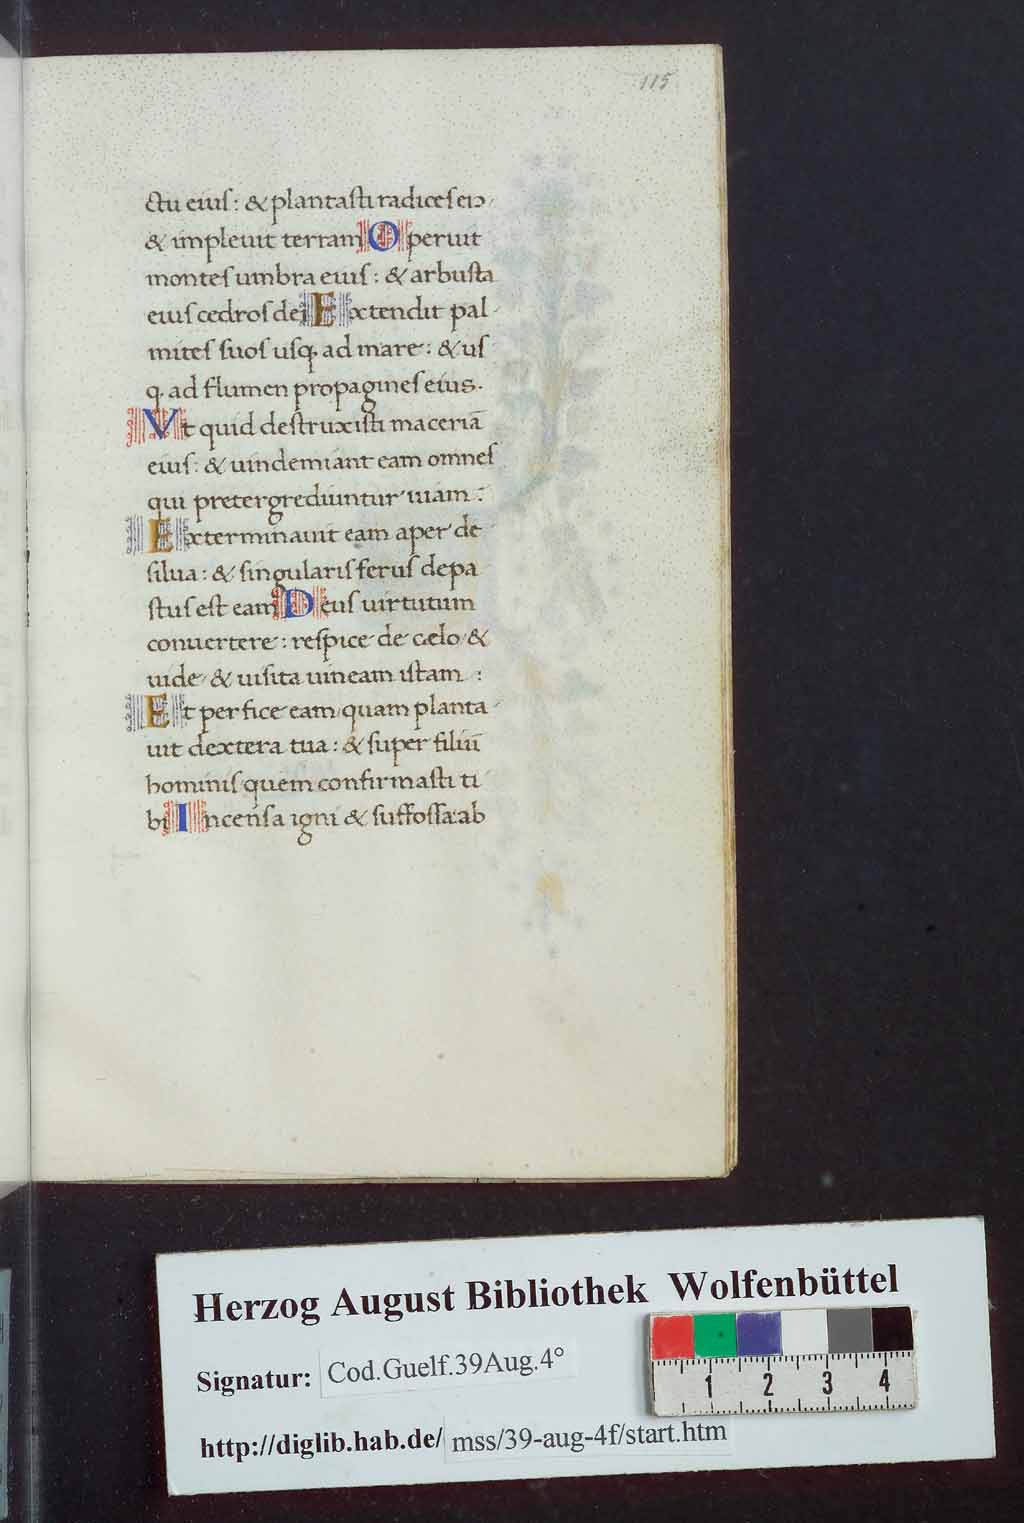 115
ctu eius: & plantasti radices ei᷒
& impleuit terram Operuit
montes umbra eius: & arbusta
eius cedros dei Extendit pal-
mites suos usq. ad mare: & us
q. ad flumen propagines eius.
Vt quid destruxisti maceriā
eius: & uindemiant eam omnes
qui pretergrediuntur uiam:
Exterminauit eam aper de
silua: & singularis ferus depa
stus est eam Deus uirtutum
conuertere: respice de cælo &
uide & uisita uineam istam:
Et perfice eam quam planta-
uit dextera tua: & super filiū
hominis quem confirmasti ti
bi Incensa igni & suffossa: ab
Herzog August Bibliothek Wolfenbüttel
Signatur: Cod.Guelf.39Aug.4°
http://diglib.hab.de/ mss/39-aug-4f/start.htm
1 2 3 4